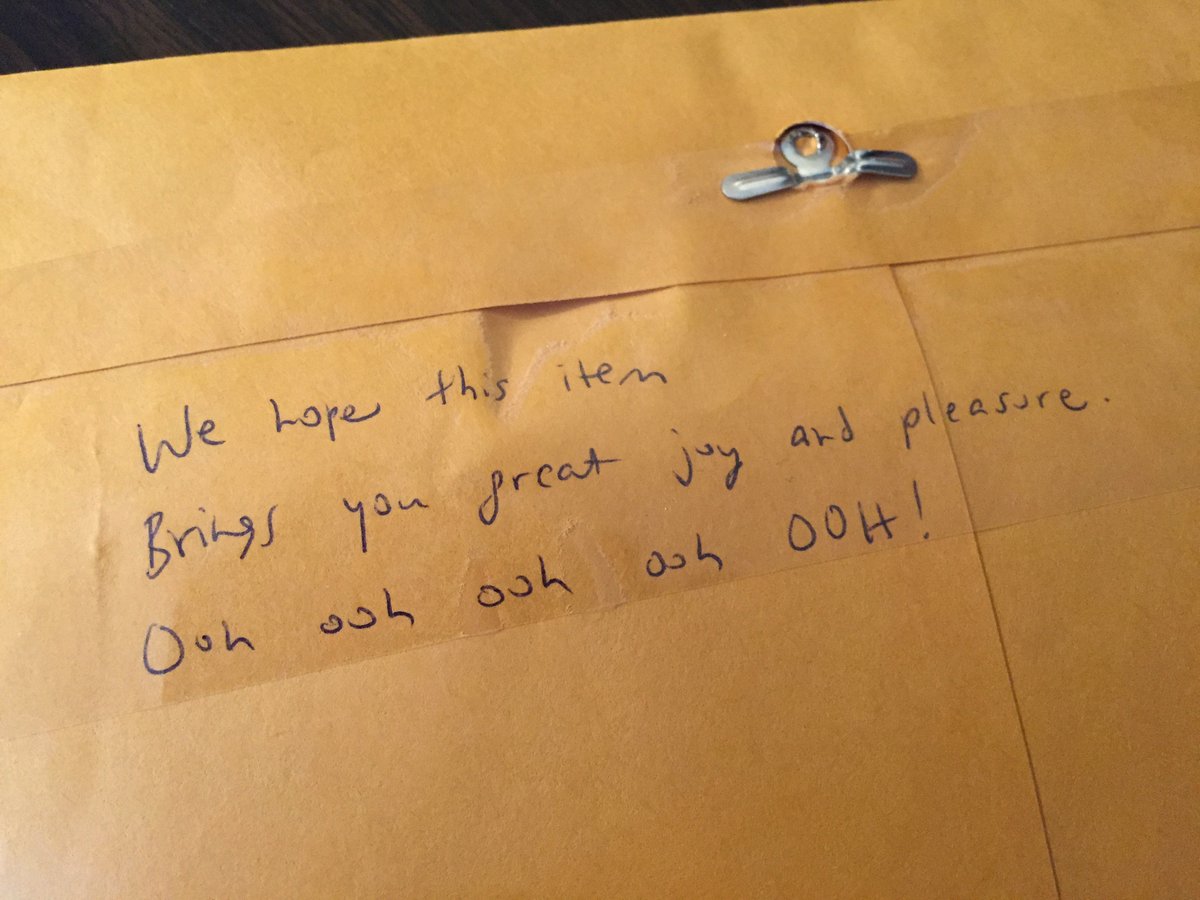 We hope this item
Brings you great joy and pleasure.
Ooh ooh ooh ooh OOH!